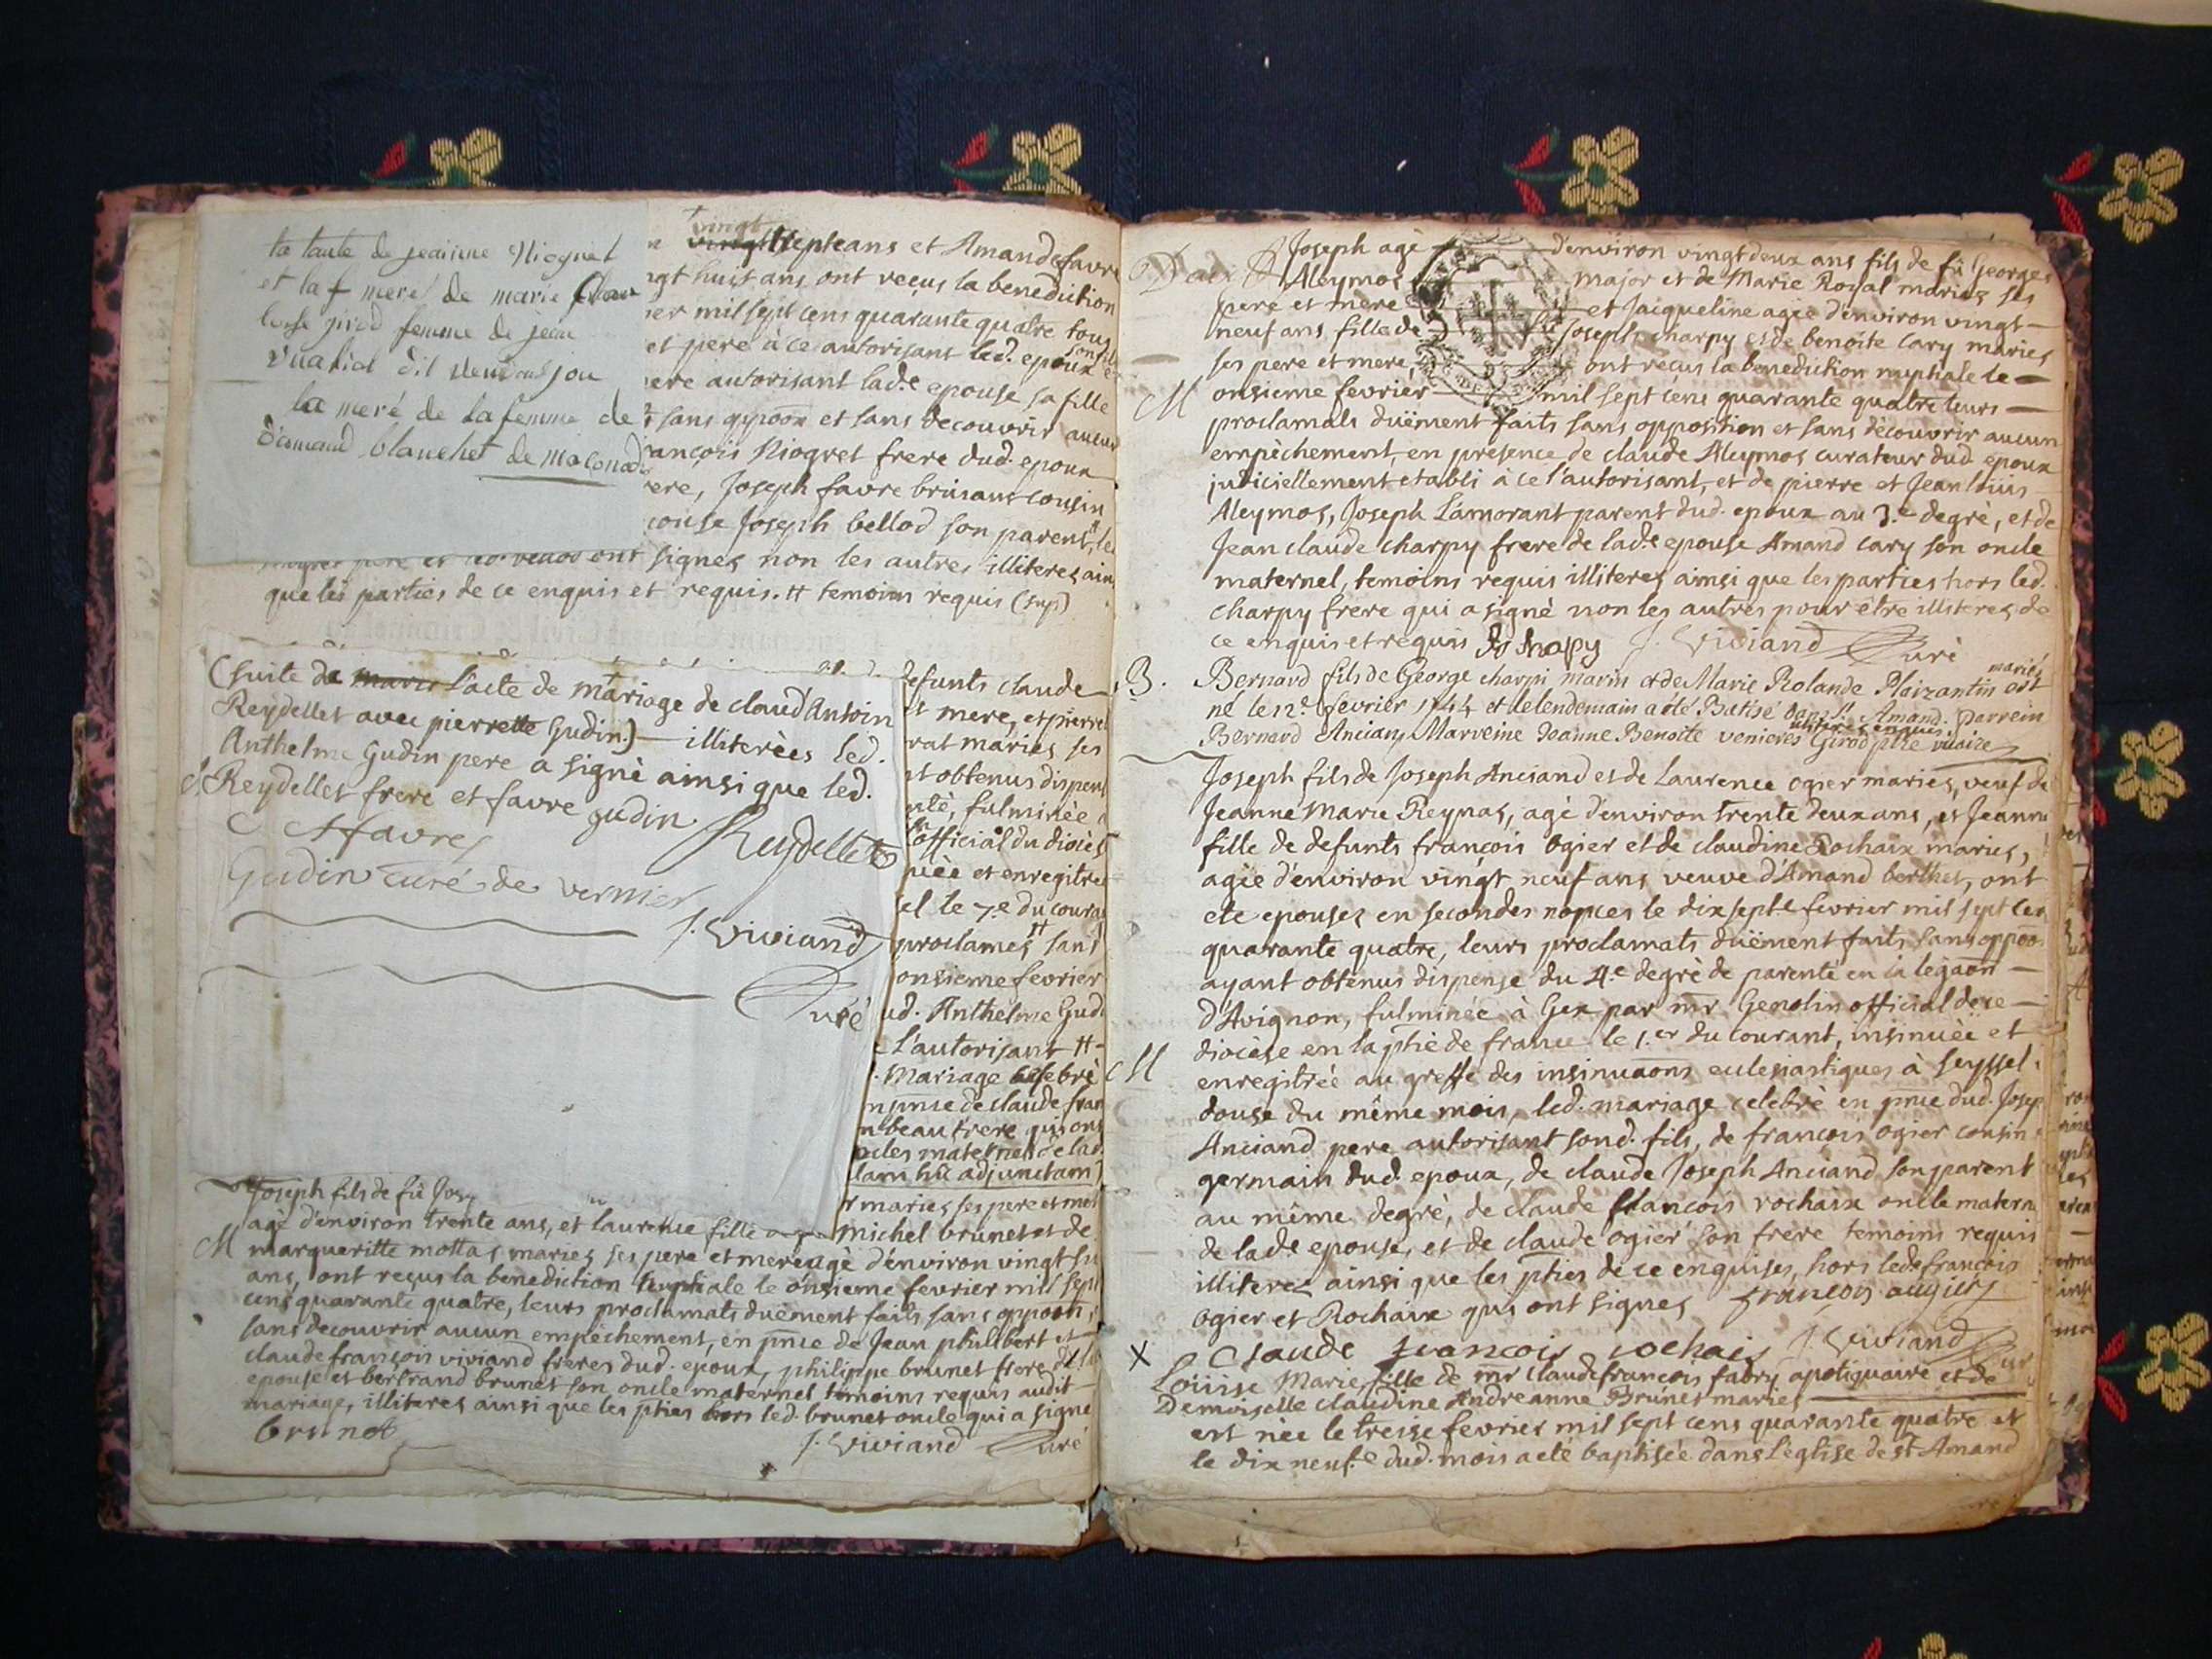 la tante de jeanne Niogret
et la f mere de marie
femme de jean
vualiat dit
la meré de la femme de
damand blanchet de
vingt
septe ans et Amande favre
ngt huit ans, ont reçus la benediction
ier mil sept cens quarante quatre tous
et pere à ce autorisant led. epoux
son fils
ere autorisant lad.e epouse sa fille
sans oppoon et sans decouvrir aucun
ançois Niogret frere dud. epoux
ere, Joseph favre brisans cousin
ouse Joseph bellod son parent, le
ont signes non les autres illiteres ain
que les parties de ce enquis et requis. # temoins requis (sup)
(suite de l'acte de mariage de claud'Antoin
Reydellet avec pierrette Gudin.) — illiterées led.
Anthelme Gudin pere a signé ainsi que led.
Reydellet frere et favre
gudin
Reydellet
favre
Gudin curé de vernier
J. Viviand
Curé
defunts claude
et mere, et pierret
rat mariés ses
nt obtenus dispens
nté, fulminée
official du diocès
uée et enregitrée
el le 7.e du coura
proclames # sans
onsieme fevrier
ud. Anthelme Gud
l'autorisant #
. mariage celebré
n pnce de claude fran
n beau frere qui ont
ncles maternels de lad.
lam hic adjunctam
r mariés ses pere et mere
Joseph fils de fû Jos
agé d'environ trente ans, et laurence fille Michel brunet et de
M margueritte mottas mariés ses pere et mere agé d'environ vingt
ans, ont reçus la benediction nuptiale le onsieme fevrier mil sept
cens quarante quatre, leurs proclamats duëment faits sans oppoon,
sans decouvrir aucun empêchement, en pnce de Jean philibert et
claude françois viviand freres dud. epoux, philippe brunet frere de
epouse et bertrand brunet son oncle maternel temoins requis audit
mariage, illiteres ainsi que les pties hors led. brunet oncle qui a signé
brunet
J. Viviand Curé
Joseph agé d'environ vingt deux ans fils de fû George
Aleymos major et de Marie Royal mariés ses
pere et mere et Jaiqueline agée d'environ vingt —
neuf ans fille de fû Joseph charpy et de benoite Cary mariés
ses pere et mere, ont reçus la benediction nuptiale le —
M onsieme fevrier mil sept cens quarante quatre leurs —
proclamats duëment faits sans opposition et sans découvrir aucun
empêchement, en presence de claude Aleymos curateur dud epoux
judiciellement etabli à ce l'autorisant, et de pierre et Jean loüis
Aleymos, Joseph L'amorant parent dud. epoux au 3.e degré, et de
Jean claude charpy frere de lad.e epouse Amand Cary son oncle
maternel, temoins requis illiteres ainsi que les parties hors led.
charpy frere qui a signé non les autres pour être illiteres de
ce enquis et requis J. Viviand Curé
B. Bernard fils de George charpi marin et de Marie Rolande Plaizantin mariés est
né le 12.e fevrier 1744 et le lendemain a été Batisé dans St Amand. Parrein
Bernard Ancian, Marreine Jeanne Benoite venieres Girod ptre vicaire
illiteres enquis
Joseph fils de Joseph Anciand et de Laurence ogier mariés, veuf de
Jeanne Marie Reynas, agé d'environ trente deux ans, et Jeanne
fille de defunts françois Ogier et de claudine Rochaix mariés,
agée d'environ vingt neuf ans veuve d'Amand berthet, ont
été epouses en secondes nopces le dix sept.e fevrier mil sept cen
quarante quatre, leurs proclamats duëment faits sans oppoo
ayant obtenus dispense du 4.e degré de parenté en la légaon —
d'Avignon, fulminée à Gex par mr Genolin official de ce —
diocèse en la ptie de france le 1.er du courant, insinuée et
M enregitrée au greffe des insinuaons eclesiastiques à seyssel
douse du même mois, led. mariage celebré en pnce dud. Josep
Anciand pere autorisant sond. fils, de françois ogier cousin
germain dud. epoux, de claude Joseph Anciand son parent
au même degré, de claude françois rochaix oncle matern
de lad.e epouse, et de claude ogier son frere temoins requis
illiteres ainsi que les pties de ce enquises, hors led. françois
ogier et Rochaix qui ont signes françois augier
claude françois rochaix J. Viviand Cur
X Loüise Marie fille de mr Claude françois fabry apotiquaire et de
Demoiselle claudine Andreanne Brunet mariés
est née le treise fevrier mil sept cens quarante quatre et
le dix neuf.e dud. mois a eté baptisée dans l'église de st Amand